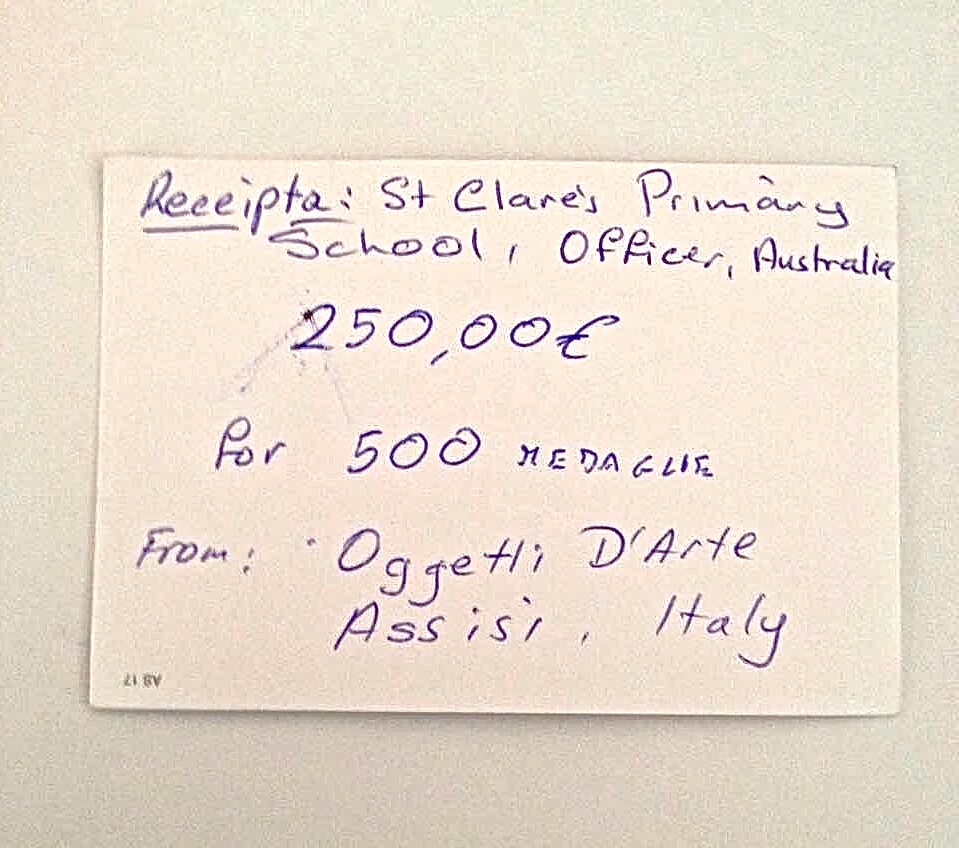 Receipta: St Clare's Primary
School, Officer, Australia
250,00€
for 500 MEDAGLIE
From: Oggetti D'Arte
Assisi, Italy
AB 17